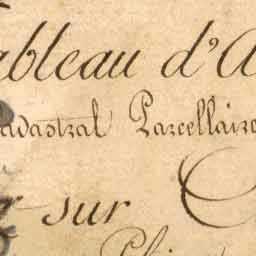 Tableau d'A
Cadastral Parcellaire
sur